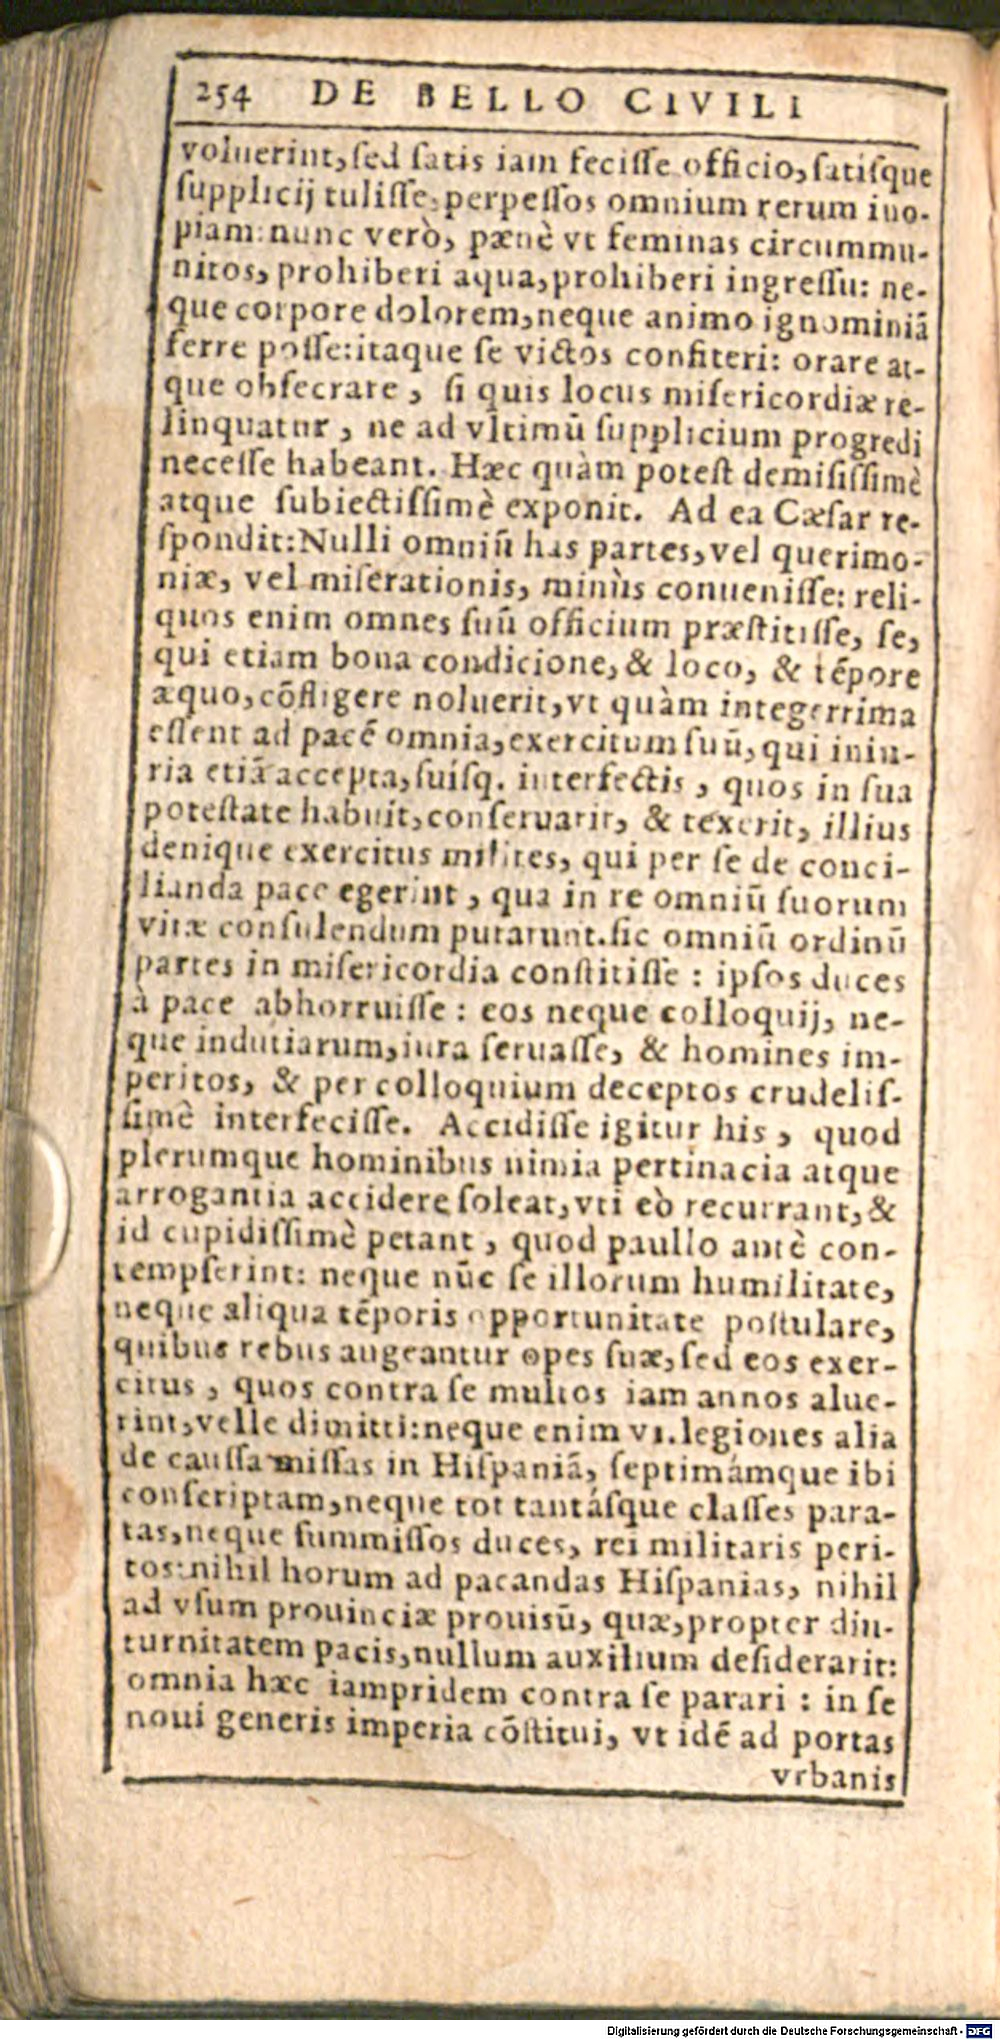 254 DE BELLO CIVILI
voluerint, sed satis iam fecisse officio, satisque
supplicij tulisse, perpessos omnium rerum ino-
piam: nunc verò, pænè vt feminas circummu-
nitos, prohiberi aqua, prohiberi ingressu: ne-
que corpore dolorem, neque animo ignominiã
ferre posse: itaque se victos confiteri: orare at-
que obsecrare, si quis locus misericordiæ re-
linquatur, ne ad vltimũ supplicium progredi
necesse habeant. Hæc quàm potest demisissimè
atque subiectissimè exponit. Ad ea Cæsar re-
spondit: Nulli omniũ has partes, vel querimo-
niæ, vel miserationis, minùs conuenisse: reli-
quos enim omnes suũ officium præstitisse, se,
qui etiam bona condicione, & loco, & tẽpore
æquo, cõfligere noluerit, vt quàm integerrima
essent ad pacẽ omnia, exercitum suũ, qui iniu-
ria etiã accepta, suisq. interfectis, quos in sua
potestate habuit, conseruarit, & texerit, illius
denique exercitus milites, qui per se de conci-
lianda pace egerint, qua in re omniũ suorum
vitæ consulendum putarunt. sic omniũ ordinũ
partes in misericordia constitisse: ipsos duces
à pace abhorruisse: eos neque colloquij, ne-
que indutiarum, iura seruasse, & homines im-
peritos, & per colloquium deceptos crudelis-
simè interfecisse. Accidisse igitur his, quod
plerumque hominibus nimia pertinacia atque
arrogantia accidere soleat, vti eò recurrant, &
id cupidissimè petant, quod paullo antè con-
tempserint: neque nũc se illorum humilitate,
neque aliqua tẽporis opportunitate postulare,
quibus rebus augeantur opes suæ, sed eos exer-
citus, quos contra se multos iam annos alue-
rint, velle dimitti: neque enim VI. legiones alia
de caussa missas in Hispaniã, septimámque ibi
conscriptam, neque tot tantásque classes para-
tas, neque summissos duces, rei militaris peri-
tos: nihil horum ad pacandas Hispanias, nihil
ad vsum prouinciæ prouisũ, quæ, propter diu-
turnitatem pacis, nullum auxilium desiderarit:
omnia hæc iampridem contra se parari: in se
noui generis imperia cõstitui, vt idẽ ad portas
vrbanis
Digitalisierung gefördert durch die Deutsche Forschungsgemeinschaft - DFG